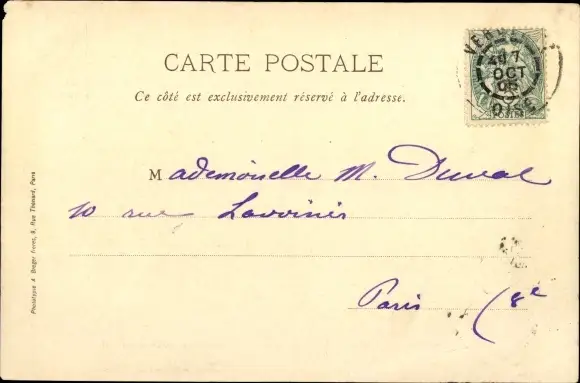 CARTE POSTALE
Ce côté est exclusivement réservé à l'adresse.
Mademoiselle M. Duval
10 rue Lavoisier
Paris (8e
OCT
OISE
POSTES
Phototypie A. Breger Frères, 9, Rue Thénard, Paris